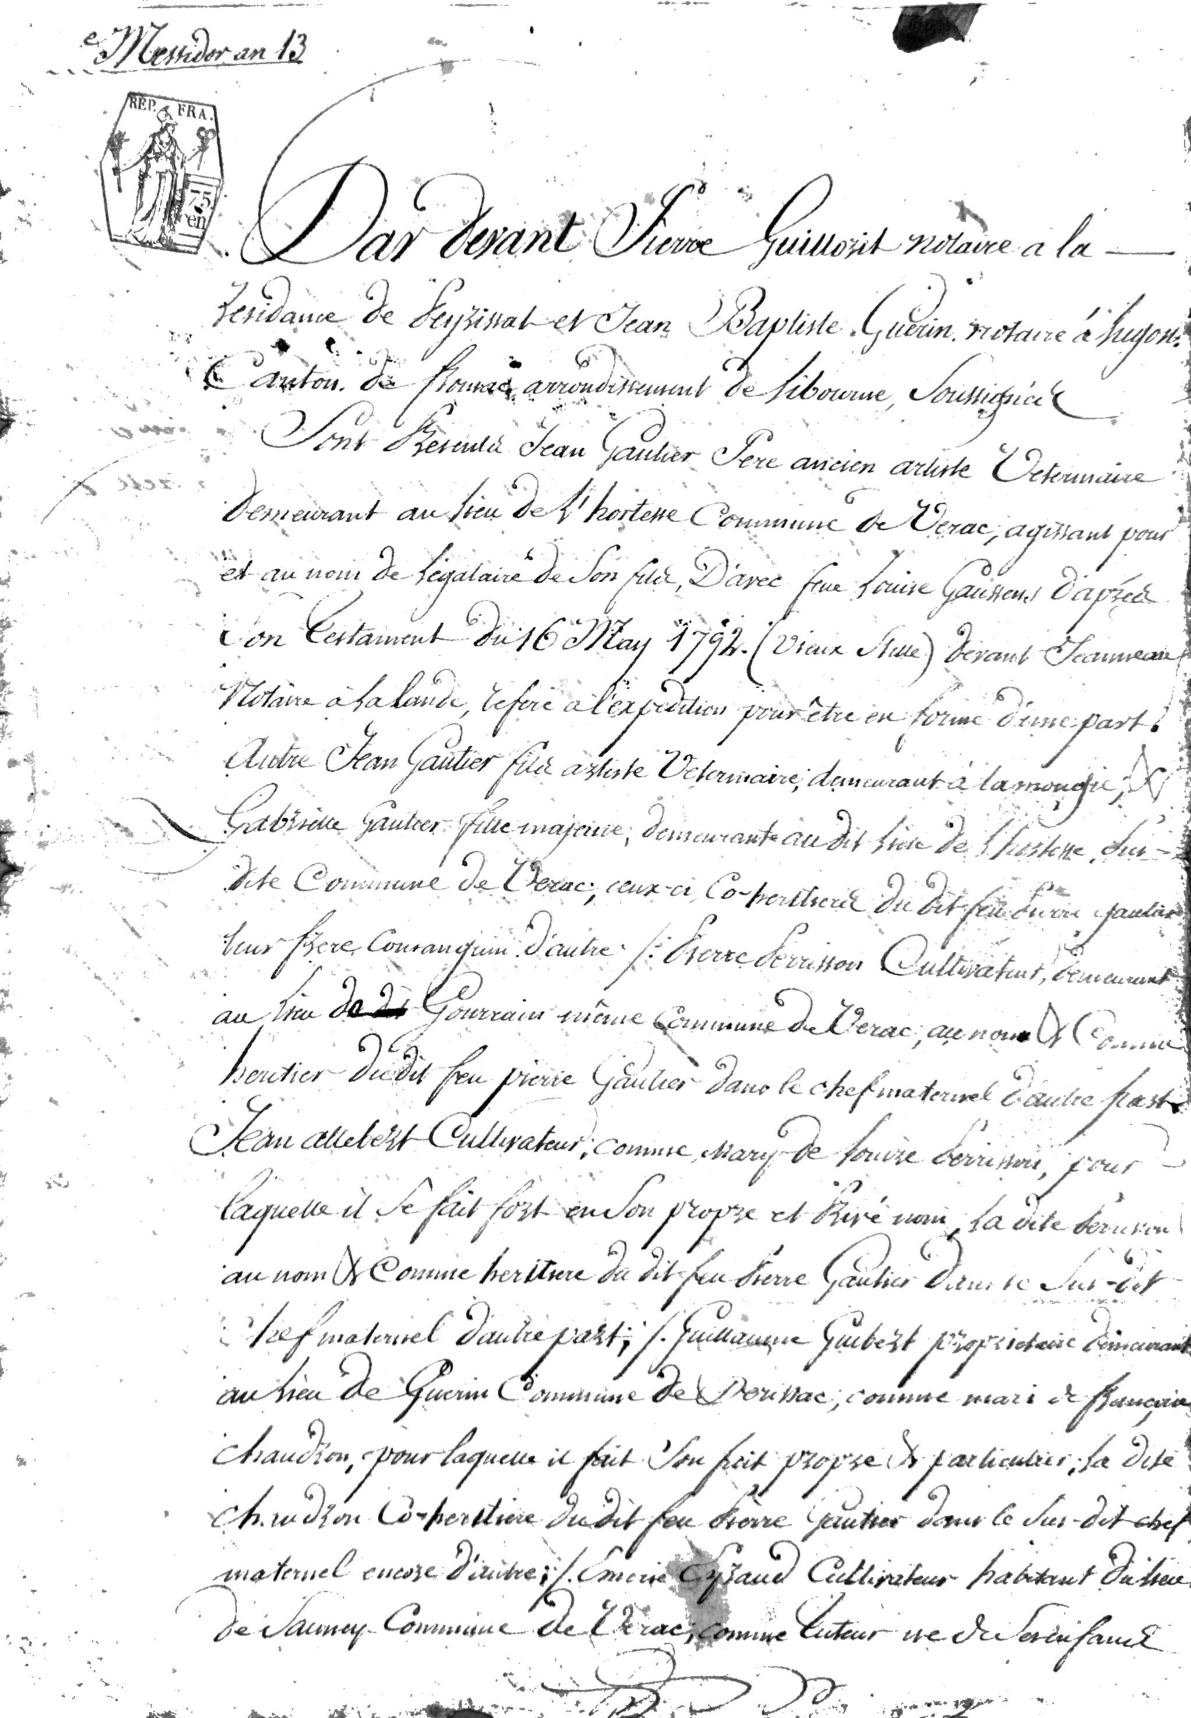 e Messidor an 13
REP. FRA.
75
en
Par devant Pierre Guillorit notaire a la
Residance de Peyrissat et Jean Baptiste Guerin notaire à Lugon.
Canton de fronsac, arrondissement de Libourne, Soussignés
Sont Presents Jean Gautier Pere ancien artiste Veterinaire
demeurant au lieu de l'hortesse Commune de Verac, agissant pour
et au nom de légataire de Son fils, D'avec feue Louise Gaussens d'après
Son testament du 16 May 1792. (vieux stille) devant Jeanneau
Notaire à la Lande, referé a l'expedition pour être en forme d'une part.
Autre Jean Gautier fils artiste Veterinaire, demeurant à la mongie, &
Gabrielle Gautier fille majeure, demeurante au dit lieu de l'hortesse, sus-
dite Commune de Verac, ceux-ci Co-heritiers du dit feu Pierre Gautier
leur frere Consanguin d'autre /: Pierre Perrisson Cultivateur, demeurant
au lieu de Gourrain même Commune de Verac, au nom & Comme
heritier du dit feu pierre Gautier dans le chef maternel d'autre part
Jean allebert Cultivateur, comme mary de Louise Perrisson, pour
laquelle il Se fait fort en Son propre et Privé nom, la dite Perrisson
au nom & Comme heritiere du dit feu Pierre Gautier dans le Sus-dit
Chef maternel d'autre part; /. Guillaume Guibert proprietaire demeurant
au lieu de Guerin Commune de Perissac, comme mari de françoise
chaudron, pour laquelle il fait Son fait propre & particulier, la dite
chaudron Co-heritiere du dit feu Pierre Gautier dans le Sus-dit chef
maternel encore d'autre; /. Emerie Eyraud Cultivateur habitant du lieu
de Saumey Commune de Verac, comme tuteur né de Ses enfants